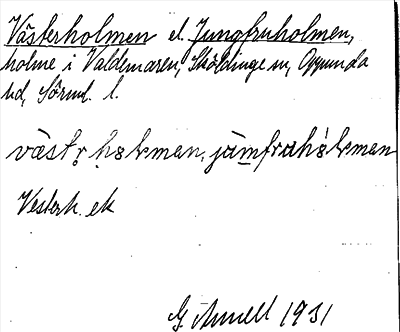 Västerholmen el. Jungfruholmen,
holme i Valdemaren, Sköldinge sn, Oppunda
hd, Sörml. l.
väst hɷlman, jàmfrɷhɷlman
Vesterh. ek
G. Arnell 1931